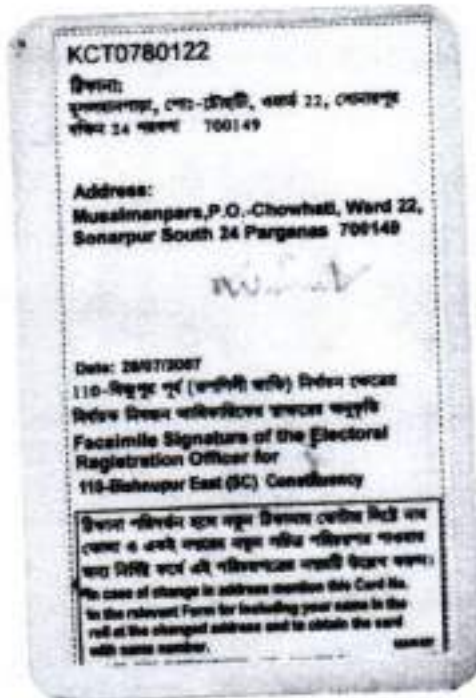 KCT0780122
ঠিকানা:
মুসলমানপাড়া, পোঃ-চৌহাটি, ওয়ার্ড 22, সোনারপুর
দক্ষিণ 24 পরগনা 700149
Address:
Musalmanpara,P.O.-Chowhati, Ward 22,
Sonarpur South 24 Parganas 700149
Date: 28/07/2007
110-বিষ্ণুপুর পূর্ব (তপশিলী জাতি) নির্বাচন ক্ষেত্রের
নির্বাচক নিবন্ধন আধিকারিকের স্বাক্ষরের অনুকৃতি
Facsimile Signature of the Electoral
Registration Officer for
110-Bishnupur East (SC) Constituency
ঠিকানা পরিবর্তন হলে নতুন ঠিকানায় ভোটার লিষ্টে নাম
তোলা ও একই নম্বরের নতুন সচিত্র পরিচয়পত্র পাওয়ার
জন্য নির্দিষ্ট ফর্মে এই পরিচয়পত্রের নম্বরটি উল্লেখ করুন।
In case of change in address mention this Card No.
in the relevant Form for including your name in the
roll at the changed address and to obtain the card
with same number.